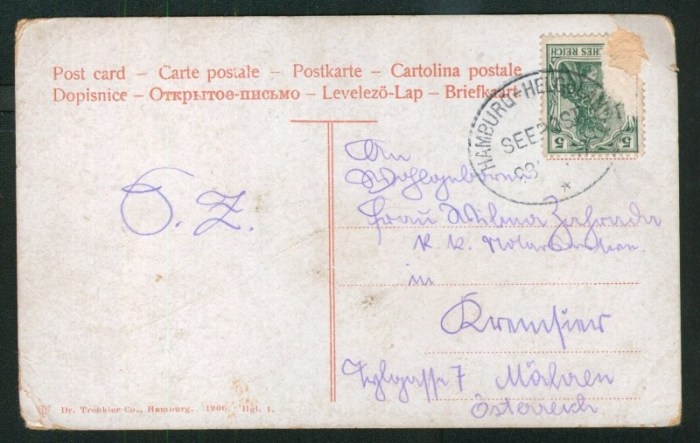 Post card – Carte postale – Postkarte – Cartolina postale
Dopisnice – Открытое-письмо – Levelező-Lap – Briefkaart
SCHES REICH
5 5
HAMBURG-HELGOLAND
SEEPOST
An
Wohlgeboren
Frau Wilma Zahrada
k. k. Notarsbeamtens
in
Kremsier
7 Mähren
Österreich
O. Z.
Dr. Trenkler Co., Hamburg. 1906. Hgl. 1.